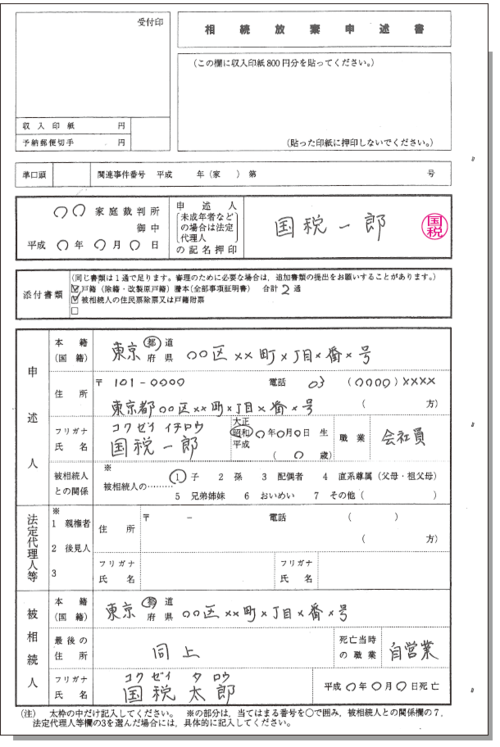 受付印
相続放棄申述書
(この欄に収入印紙800円分を貼ってください。)
収入印紙 円
予納郵便切手 円
(貼った印紙に押印しないでください。)
準口頭 関連事件番号 平成 年(家 )第 号
〇〇 家庭裁判所
御中
平成 〇年 〇月 〇日
申述人
未成年者など
の場合は法定
代理人
の記名押印
国税一郎
国税
添付書類
(同じ書類は1通で足ります。審理のために必要な場合は、追加書類の提出をお願いすることがあります。)
☑戸籍(除籍・改製原戸籍)謄本(全部事項証明書) 合計 2 通
☑被相続人の住民票除票又は戸籍附票
□
申述人
本籍
(国籍)
東京 都 道 府 県 〇〇区××町×丁目×番×号
住所
〒 101-0000 電話 03 (0000) ××××
東京都〇〇区××町×丁目×番×号 ( 方)
フリガナ コクゼイ イチロウ
氏名 国税一郎
大正
昭和
平成
〇年〇月〇日 生
( 〇 歳)
職業 会社員
被相続人
との関係
※
被相続人の………
① 子 2 孫 3 配偶者 4 直系尊属(父母・祖父母)
5 兄弟姉妹 6 おいめい 7 その他( )
法定代理人等
※
1 親権者
2 後見人
3
住所
〒 - 電話 ( )
( 方)
フリガナ
氏名
フリガナ
氏名
被相続人
本籍
(国籍)
東京 都 道 府 県 〇〇区××町×丁目×番×号
最後の
住所
同上
死亡当時
の職業
自営業
フリガナ コクゼイ タロウ
氏名 国税太郎
平成 〇年〇月〇日死亡
(注) 太枠の中だけ記入してください。 ※の部分は,当てはまる番号を〇で囲み,被相続人との関係欄の7,
法定代理人等欄の3を選んだ場合には,具体的に記入してください。